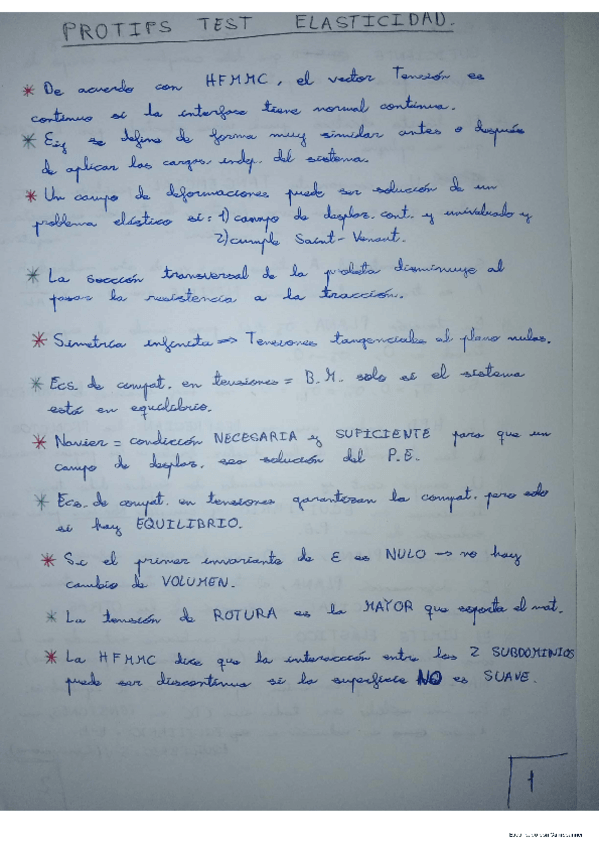 PROTIPS TEST ELASTICIDAD.
* De acuerdo con HFMMC, el vector Tensión es
continuo si la interfase tiene normal continua.
* Eij se define de forma muy similar antes o después
de aplicar las cargas. indep. del sistema.
* Un campo de deformaciones puede ser solución de un
problema elástico si: 1) campo de desplaz. cont. y univaluado y
2) cumple Saint-Venant.
* La sección transversal de la probeta disminuye al
pasar la resistencia a la tracción.
* Simetría infinita => Tensiones tangenciales al plano nulas.
* Ecs. de compat. en tensiones = B.M. solo si el sistema
está en equilibrio.
* Navier = condición NECESARIA y SUFICIENTE para que un
campo de desplaz. sea solución del P.E.
* Ecs. de compat. en tensiones garantizan la compat. pero solo
si hay EQUILIBRIO.
* Si el primer invariante de E es NULO → no hay
cambio de VOLUMEN.
* La tensión de ROTURA es la MAYOR que soporta el mat.
* La HFMMC dice que la interacción entre los 2 SUBDOMINIOS
puede ser discontinua si la superficie NO es SUAVE.
1